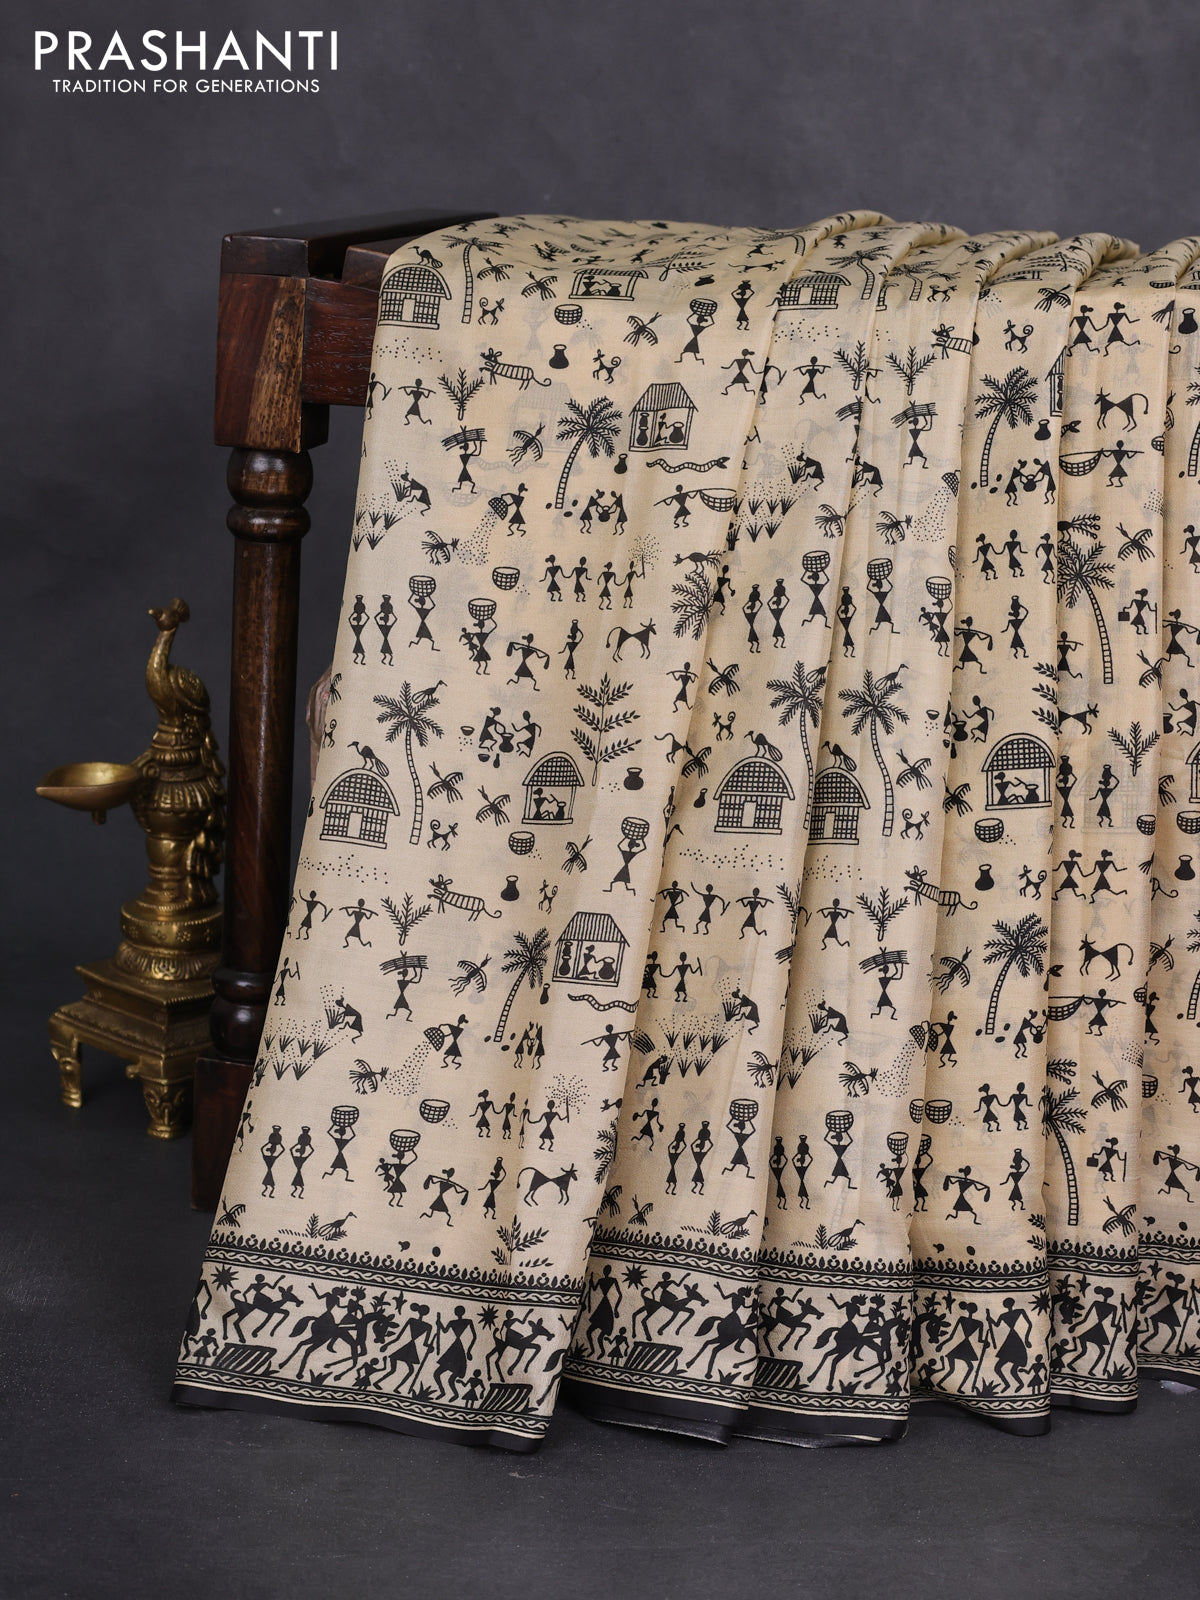 PRASHANTI
TRADITION FOR GENERATIONS